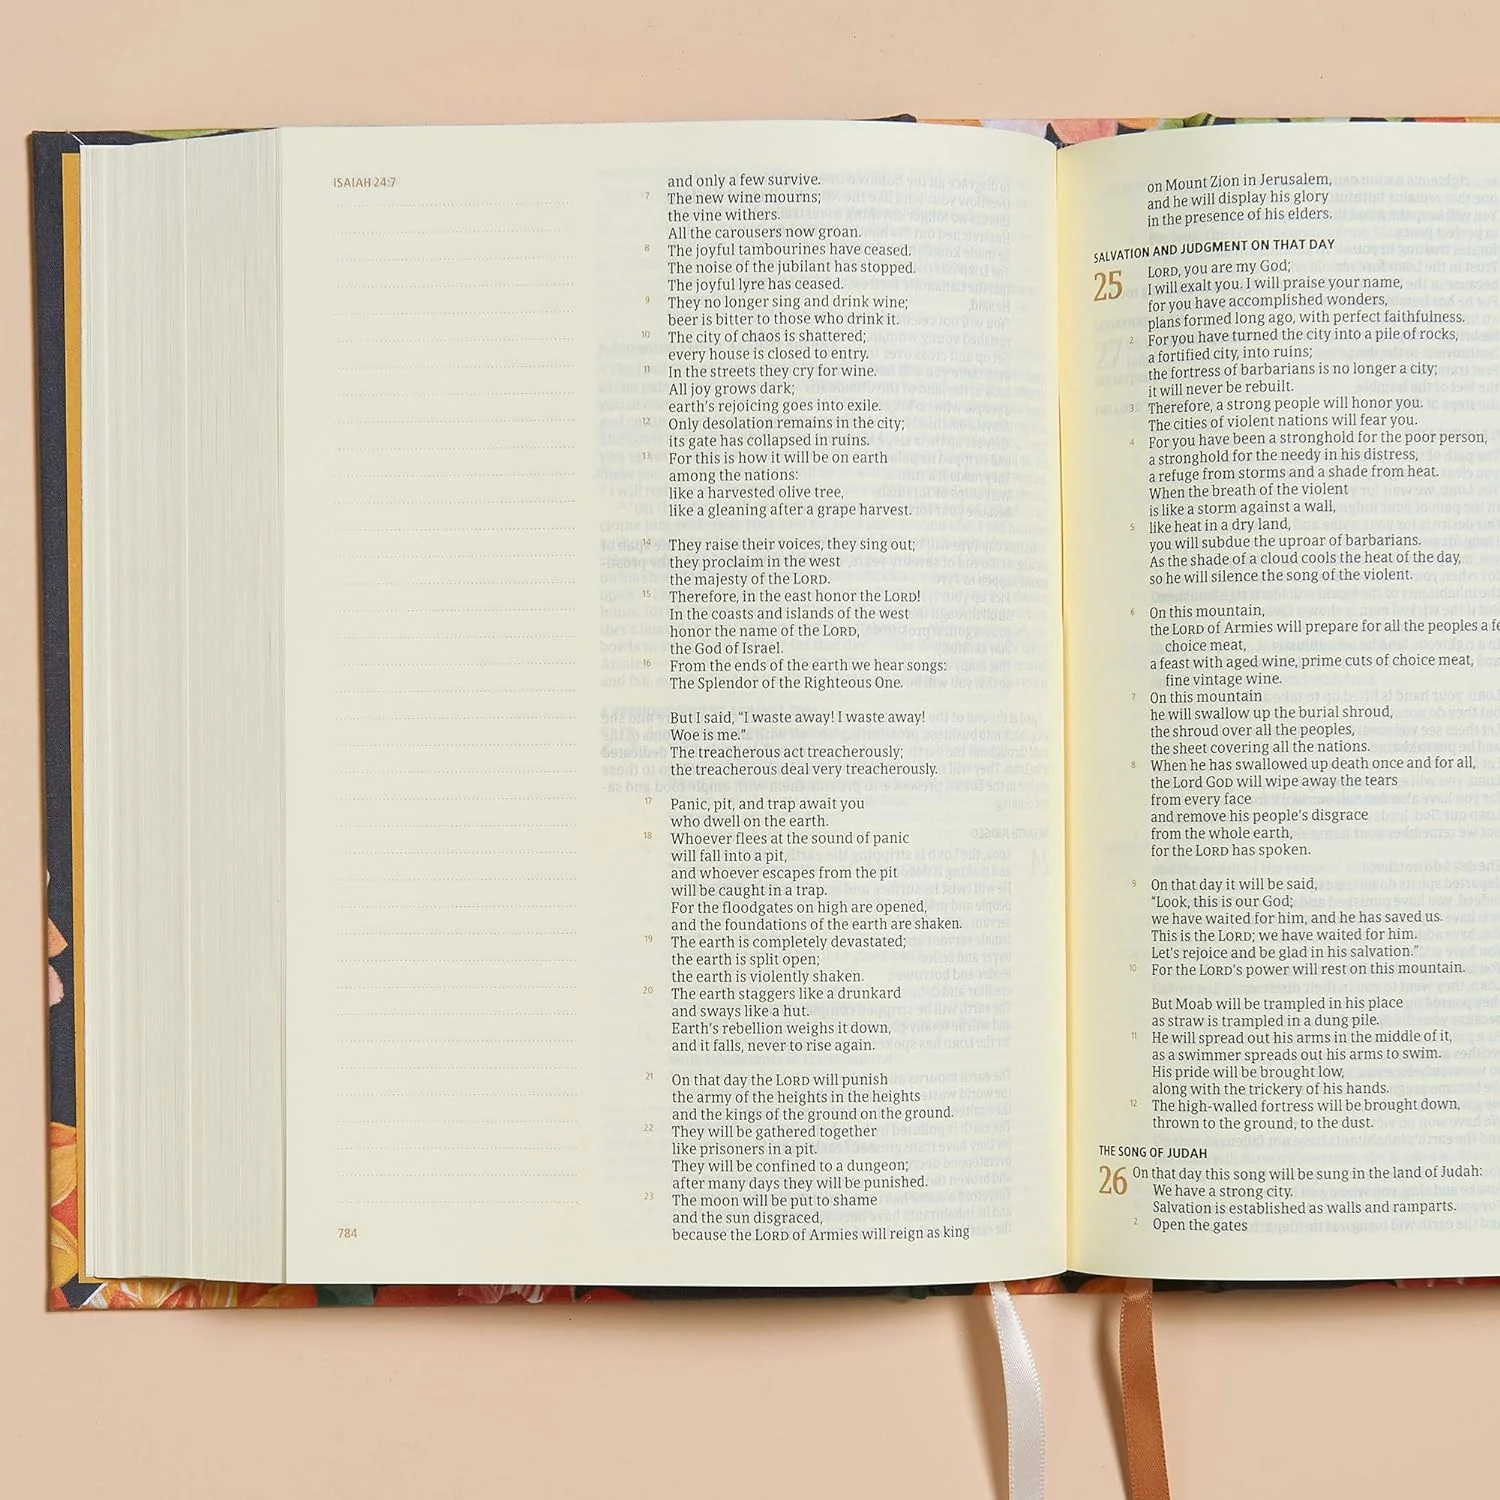 ISAIAH 24:7
and only a few survive.
7 The new wine mourns;
the vine withers.
All the carousers now groan.
8 The joyful tambourines have ceased.
The noise of the jubilant has stopped.
The joyful lyre has ceased.
9 They no longer sing and drink wine;
beer is bitter to those who drink it.
10 The city of chaos is shattered;
every house is closed to entry.
11 In the streets they cry for wine.
All joy grows dark;
earth's rejoicing goes into exile.
12 Only desolation remains in the city;
its gate has collapsed in ruins.
13 For this is how it will be on earth
among the nations:
like a harvested olive tree,
like a gleaning after a grape harvest.
14 They raise their voices, they sing out;
they proclaim in the west
the majesty of the LORD.
15 Therefore, in the east honor the LORD!
In the coasts and islands of the west
honor the name of the LORD,
the God of Israel.
16 From the ends of the earth we hear songs:
The Splendor of the Righteous One.
But I said, “I waste away! I waste away!
Woe is me.”
The treacherous act treacherously;
the treacherous deal very treacherously.
17 Panic, pit, and trap await you
who dwell on the earth.
18 Whoever flees at the sound of panic
will fall into a pit,
and whoever escapes from the pit
will be caught in a trap.
For the floodgates on high are opened,
and the foundations of the earth are shaken.
19 The earth is completely devastated;
the earth is split open;
the earth is violently shaken.
20 The earth staggers like a drunkard
and sways like a hut.
Earth's rebellion weighs it down,
and it falls, never to rise again.
21 On that day the LORD will punish
the army of the heights in the heights
and the kings of the ground on the ground.
22 They will be gathered together
like prisoners in a pit.
They will be confined to a dungeon;
after many days they will be punished.
23 The moon will be put to shame
and the sun disgraced,
because the LORD of Armies will reign as king
784
on Mount Zion in Jerusalem,
and he will display his glory
in the presence of his elders.
SALVATION AND JUDGMENT ON THAT DAY
25 LORD, you are my God;
I will exalt you. I will praise your name,
for you have accomplished wonders,
plans formed long ago, with perfect faithfulness.
2 For you have turned the city into a pile of rocks,
a fortified city, into ruins;
the fortress of barbarians is no longer a city;
it will never be rebuilt.
3 Therefore, a strong people will honor you.
The cities of violent nations will fear you.
4 For you have been a stronghold for the poor person,
a stronghold for the needy in his distress,
a refuge from storms and a shade from heat.
When the breath of the violent
is like a storm against a wall,
5 like heat in a dry land,
you will subdue the uproar of barbarians.
As the shade of a cloud cools the heat of the day,
so he will silence the song of the violent.
6 On this mountain,
the LORD of Armies will prepare for all the peoples a
choice meat,
a feast with aged wine, prime cuts of choice meat,
fine vintage wine.
7 On this mountain
he will swallow up the burial shroud,
the shroud over all the peoples,
the sheet covering all the nations.
8 When he has swallowed up death once and for all,
the Lord GOD will wipe away the tears
from every face
and remove his people's disgrace
from the whole earth,
for the LORD has spoken.
9 On that day it will be said,
“Look, this is our God;
we have waited for him, and he has saved us.
This is the LORD; we have waited for him.
Let's rejoice and be glad in his salvation.”
10 For the LORD's power will rest on this mountain.
But Moab will be trampled in his place
as straw is trampled in a dung pile.
11 He will spread out his arms in the middle of it,
as a swimmer spreads out his arms to swim.
His pride will be brought low,
along with the trickery of his hands.
12 The high-walled fortress will be brought down,
thrown to the ground, to the dust.
THE SONG OF JUDAH
26 On that day this song will be sung in the land of Judah:
We have a strong city.
Salvation is established as walls and ramparts.
2 Open the gates